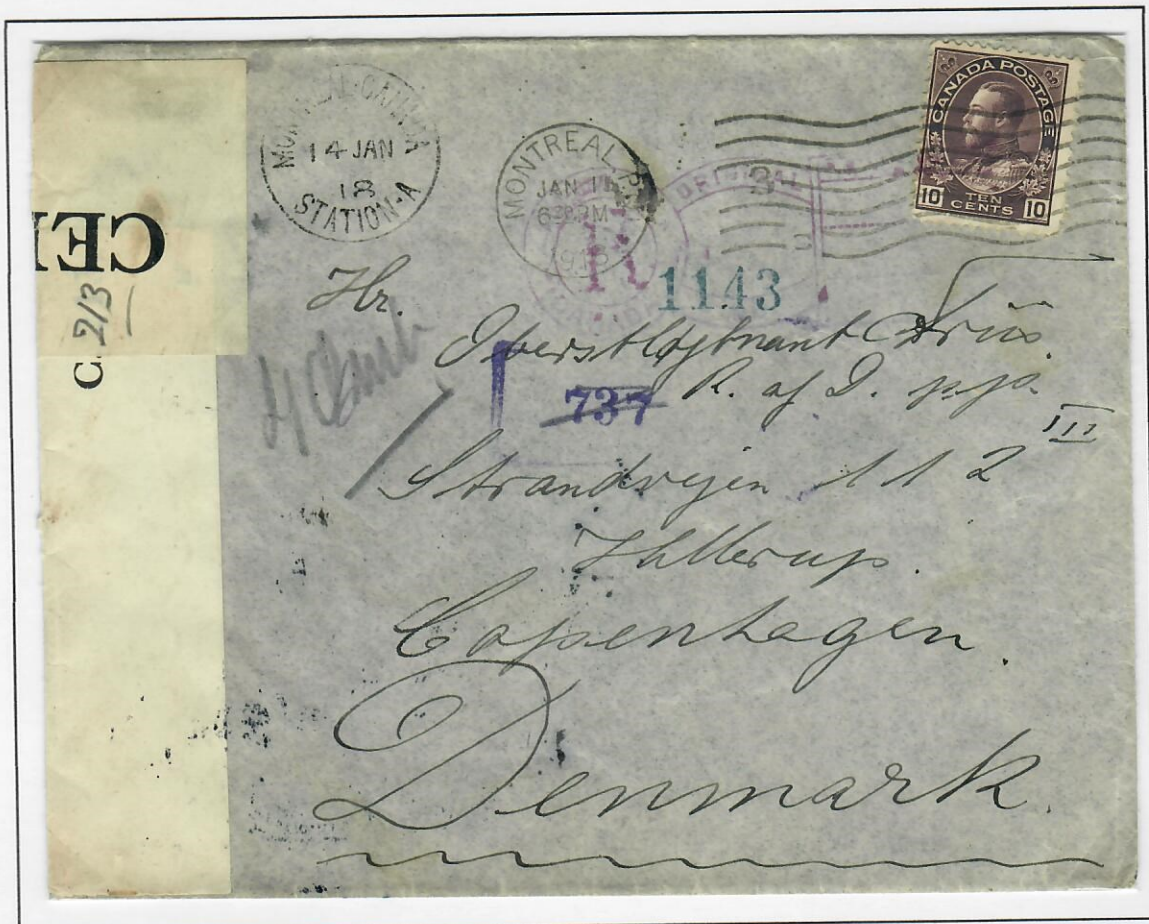 MONTREAL·CANADA
14 JAN
18
STATION·A
MONTREAL, P.Q.
JAN 14
6 30 PM
1918
3
ORIGINAL
R
1143
CANADA POSTAGE
10 TEN CENTS 10
CE
C. 213
Hr.
Oberstløjtnant Friis.
R. af D. p.p.
737
III
Strandvejen 112
Hellerup.
Copenhagen.
Denmark.